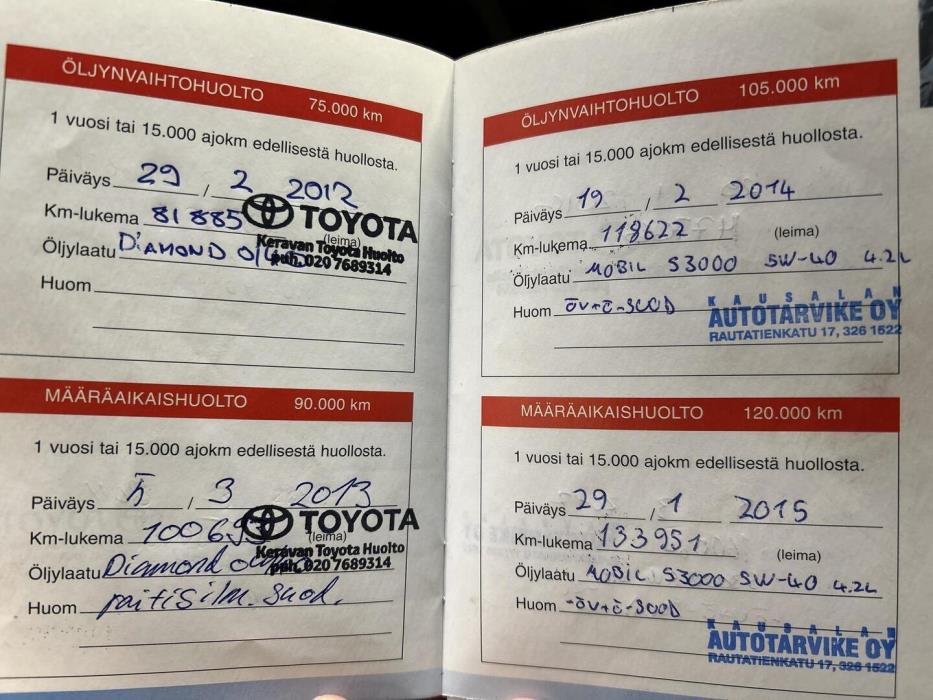 ÖLJYNVAIHTOHUOLTO 75.000 km
1 vuosi tai 15.000 ajokm edellisestä huollosta.
Päiväys 29 / 2 2012
Km-lukema 81 885 TOYOTA
(leima)
Keravan Toyota Huolto
Öljylaatu DiAMOND
puh. 020 7689314
Huom
MÄÄRÄAIKAISHUOLTO 90.000 km
1 vuosi tai 15.000 ajokm edellisestä huollosta.
Päiväys / 3 2013
Km-lukema TOYOTA
(leima)
Keravan Toyota Huolto
Öljylaatu Diamond
puh. 020 7689314
Huom suod.
ÖLJYNVAIHTOHUOLTO 105.000 km
1 vuosi tai 15.000 ajokm edellisestä huollosta.
Päiväys 19 / 2 2014
Km-lukema 118622 (leima)
Öljylaatu MOBIL S3000 5W-40 4.2L
Huom öv+ö-SUOD
KAUSALAN
AUTOTARVIKE OY
RAUTATIENKATU 17, 326 1522
MÄÄRÄAIKAISHUOLTO 120.000 km
1 vuosi tai 15.000 ajokm edellisestä huollosta.
Päiväys 29 / 1 2015
Km-lukema 133951 (leima)
Öljylaatu MOBIL S3000 5W-40 4.2L
Huom -öv+ö-SUOD
KAUSALAN
AUTOTARVIKE OY
RAUTATIENKATU 17, 326 1522